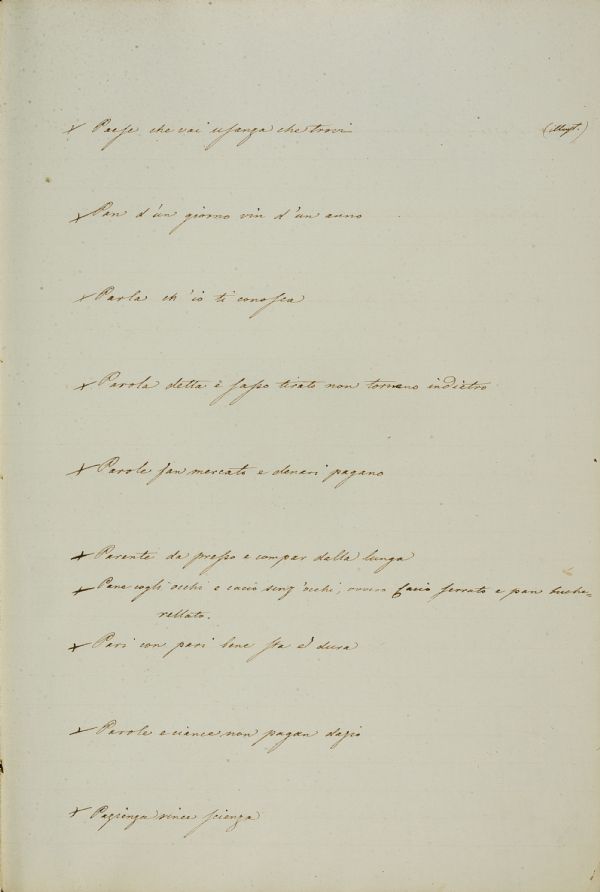 × Paese che vai usanza che trovi
× Pan d'un giorno vin d'un anno
× Parla ch'io ti conosca
× Parola detta è sasso tirato non tornano indietro
× Parole fan mercato e denari pagano
× Parente da presso e compar dalla lunga
× Pane cogli occhi e cacio senz'occhi, ovvero Cacio serrato e pan buche=
rellato.
× Pari con pari bene sta e dura
× Parole e ciance non pagan dazio
× Pazienza vince scienza